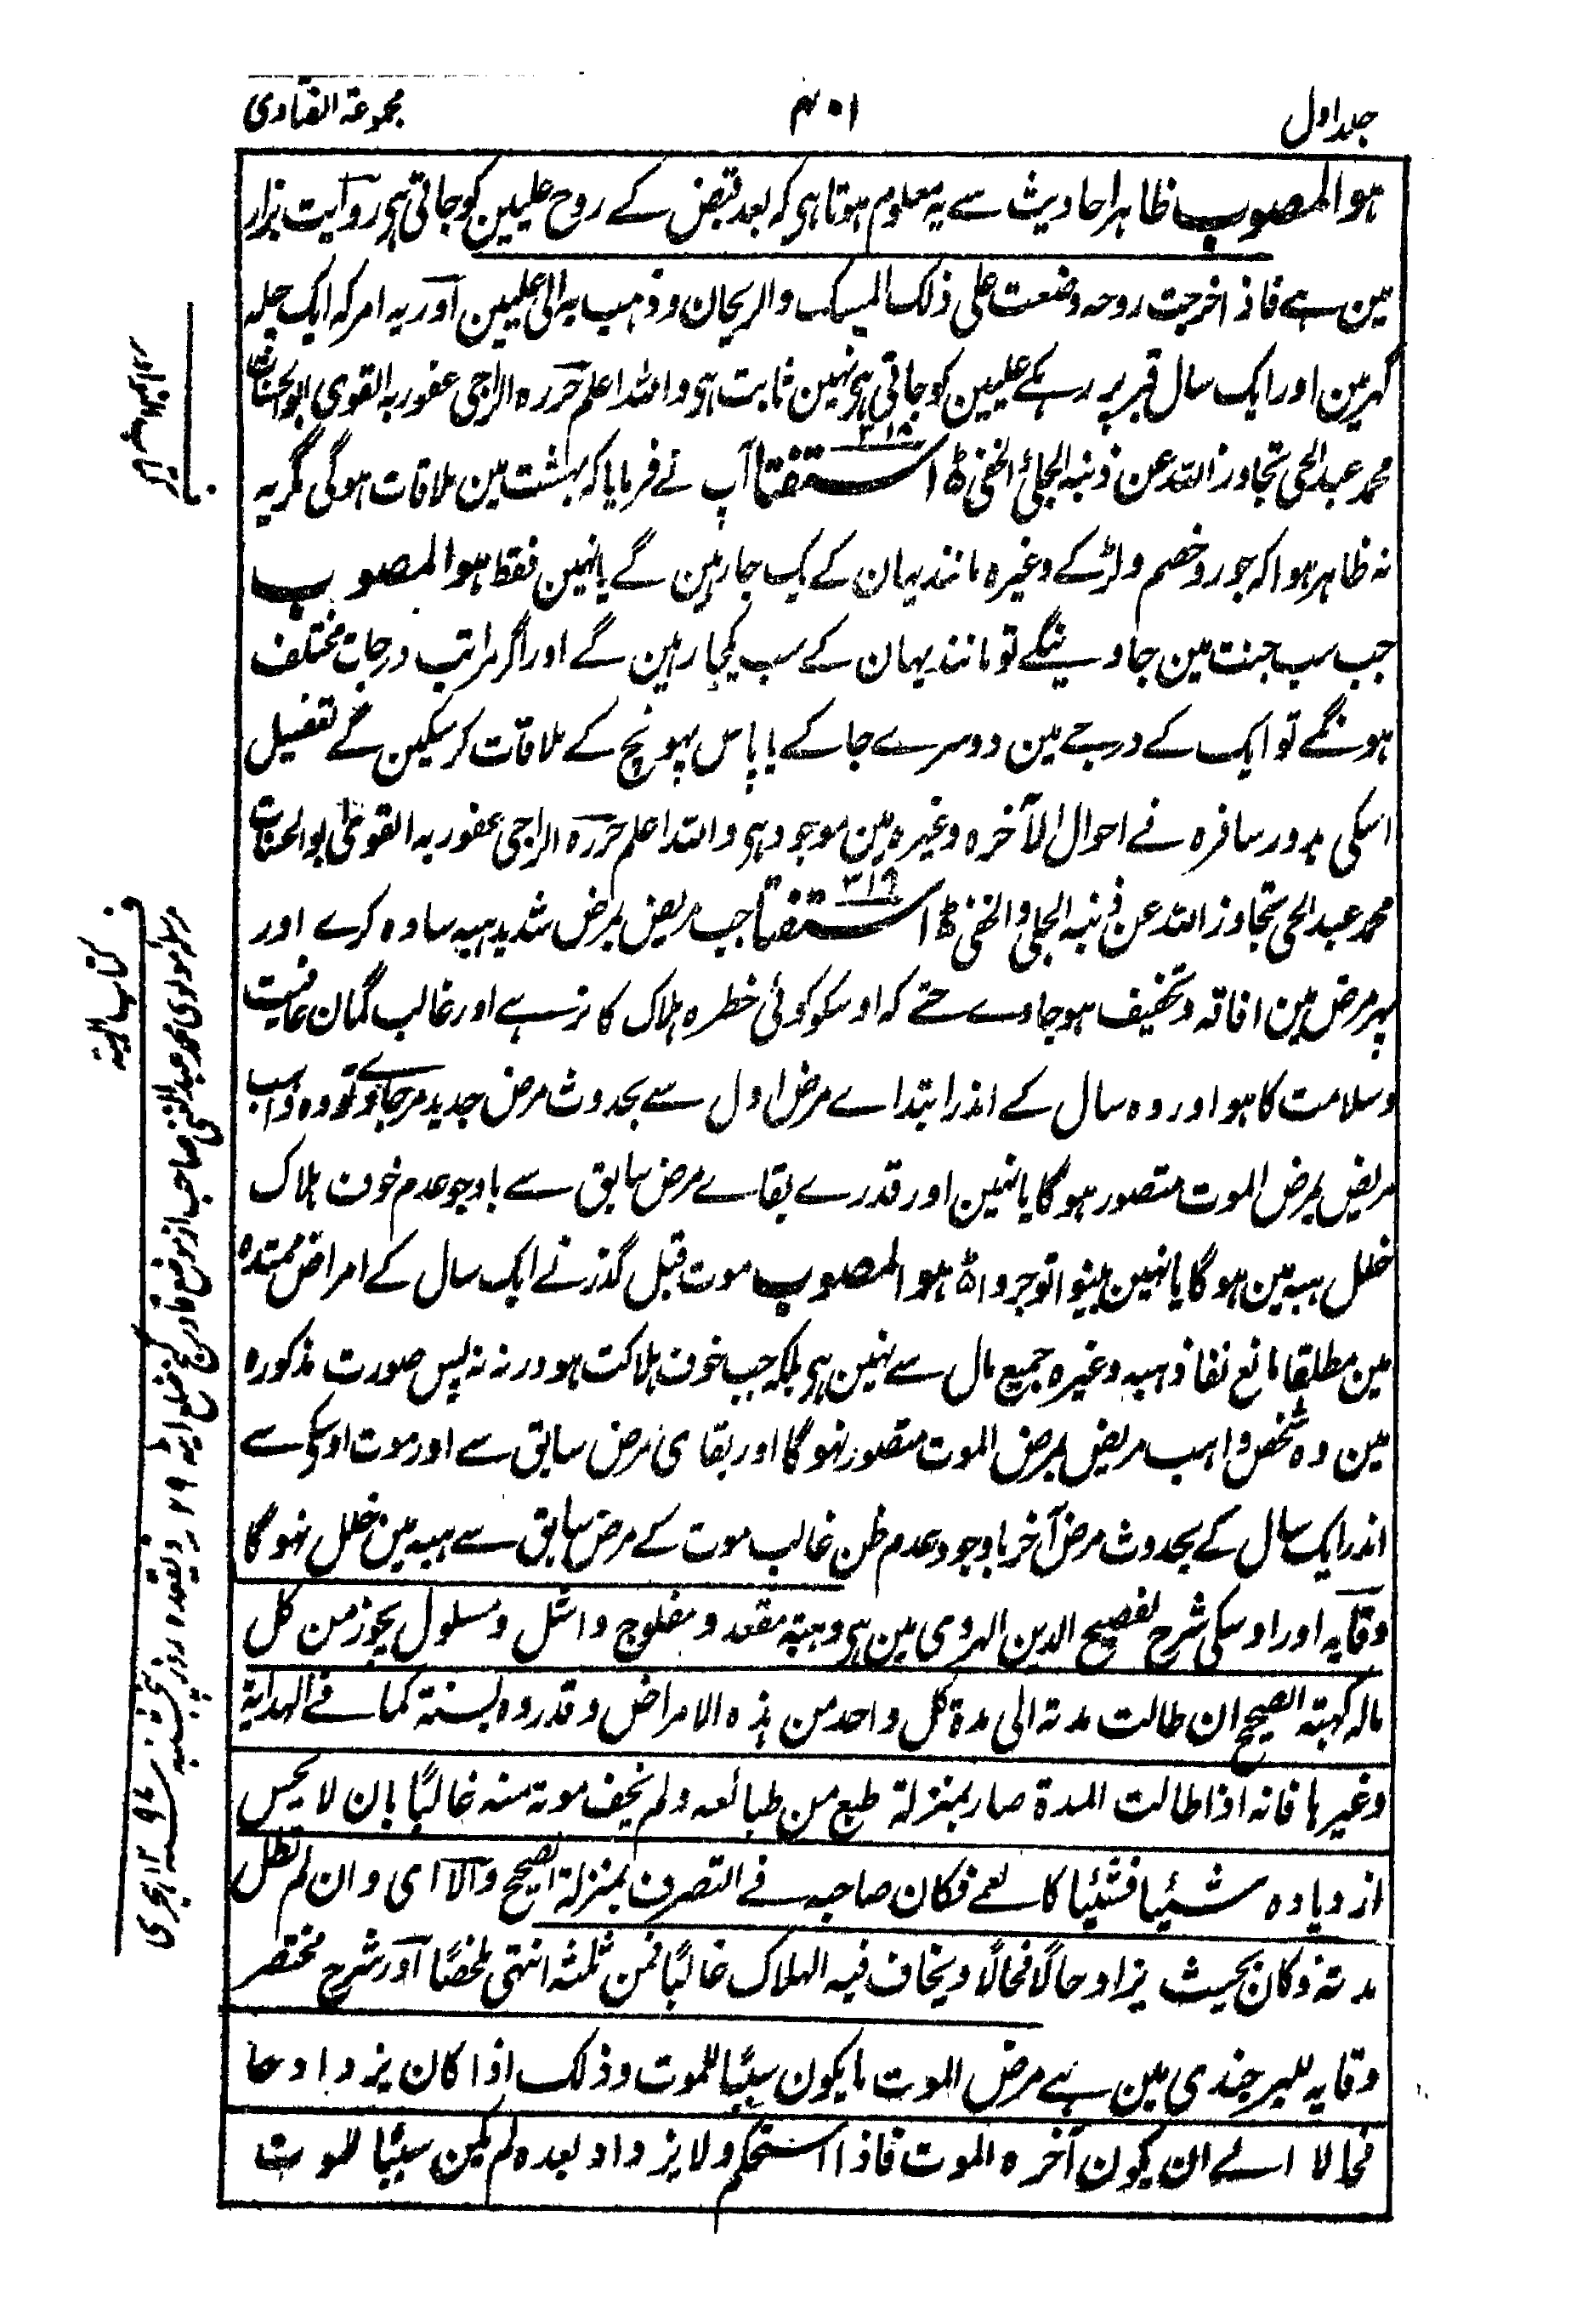 جلد اول
۴۰۱
مجموعۃ الفتاوی
ہو المصوب ظاہر احادیث سے یہ معلوم ہوتا ہی کہ بعد قبض کے روح علیین کو جاتی ہی روایت بزار
مین ہے فاذ اخرجت روحہ وضعت علی ذلک المسک والریحان وذہب بہ الی علیین اور یہ امر کہ ایک چلہ
گہر مین اور ایک سال قبر پر رہکے علیین کو جاتی ہی نہین ثابت ہی واللہ اعلم حررہ الراجی عفو ربہ القوی ابو الحسنات
محمد عبد الحی تجاوز اللہ عن ذنبہ الجلی الخفی ۳۱۸ استفتا آپ نے فرمایا کہ بہشت مین ملاقات ہوگی مگر یہ
نہ ظاہر ہوا کہ جورو خصم ولڑکے وغیرہ مانند یہان کے یک جا رہین گے یا نہین فقط ہو المصوب
جب سب جنت مین جاوینگے تو مانند یہان کے سب یکجا رہین گے اور اگر مراتب درجات مختلف
ہونگے تو ایک کے درجے مین دوسرے جاکے یا پاس پہونچ کے ملاقات کر سکین گے تفصیل
اسکی بدور سافرہ فے احوال الآخرہ وغیرہ مین موجود ہی واللہ اعلم حررہ الراجی عفو ربہ القوی ابو الحسنات
محمد عبد الحی تجاوز اللہ عن ذنبہ الجلی والخفی ۳۱۹ استفتا جب مریض بمرض شدید ہبہ سادہ کرے اور
پہر مرض مین افاقہ وتخفیف ہو جاوے حتے کہ اوسکو کوئی خطرہ ہلاک کا نرہے اور غالب گمان عافیت
وسلامت کا ہو اور وہ سال کے اندر ابتداے مرض اول سے بحدوث مرض جدید مرجاوے تو وہ واہب
مریض بمرض الموت متصور ہوگا یا نہین اور قدرے بقاے مرض سابق سے باوجود عدم خوف ہلاک
خلل ہبہ مین ہوگا یا نہین بینوا توجروا ہو المصوب موت قبل گذرنے ایک سال کے امراض ممتدہ
مین مطلقا مانع نفاذ ہبہ وغیرہ جمیع مال سے نہین ہی بلکہ جب خوف ہلاکت ہو ورنہ نہ پس صورت مذکورہ
مین وہ شخص واہب مریض بمرض الموت متصور نہوگا اور بقای مرض سابق سے اور موت اوسکی سے
اندر ایک سال کے بحدوث مرض آخر باوجود عدم ظن غالب موت کے مرض سابق سے ہبہ مین خلل نہوگا
وقایہ اور اوسکی شرح لفصیح الدین الہروی مین ہی وہبۃ مقعد ومفلوج واشل ومسلول یجوز من کل
مالہ کہبۃ الصحیح ان طالت مدتہ الی مدۃ کل واحد من ہذہ الامراض وقدروہ بسنۃ کما فے الہدایۃ
وغیرہا فانہ اذا طالت المدۃ صار بمنزلۃ طبع من طبائعہ ولم یخف موتہ منہ غالبًا بان لا یحس
ازدیادہ شیئا فشیئا کالعمی فکان صاحبہ فے التصرف بمنزلۃ الصحیح والا ای وان لم تطل
مدتہ وکان بحیث یزاد حالًا فحالًا ویخاف فیہ الہلاک غالبًا فمن ثلثہ انتہی ملخصًا اور شرح مختصر
وقایہ للبرجندی مین ہے مرض الموت ما یکون سببًا للموت وذلک اذا کان یزداد حا
فحالا الے ان یکون آخرہ الموت فاذا استحکم ولا یزداد بعدہ لم یکن سببًا للموت
کتاب الہبۃ
مولوی محمد عبد الغنی صاحب از موضع ۲۹ ذیقعدہ روز پنجشنبہ ہجری